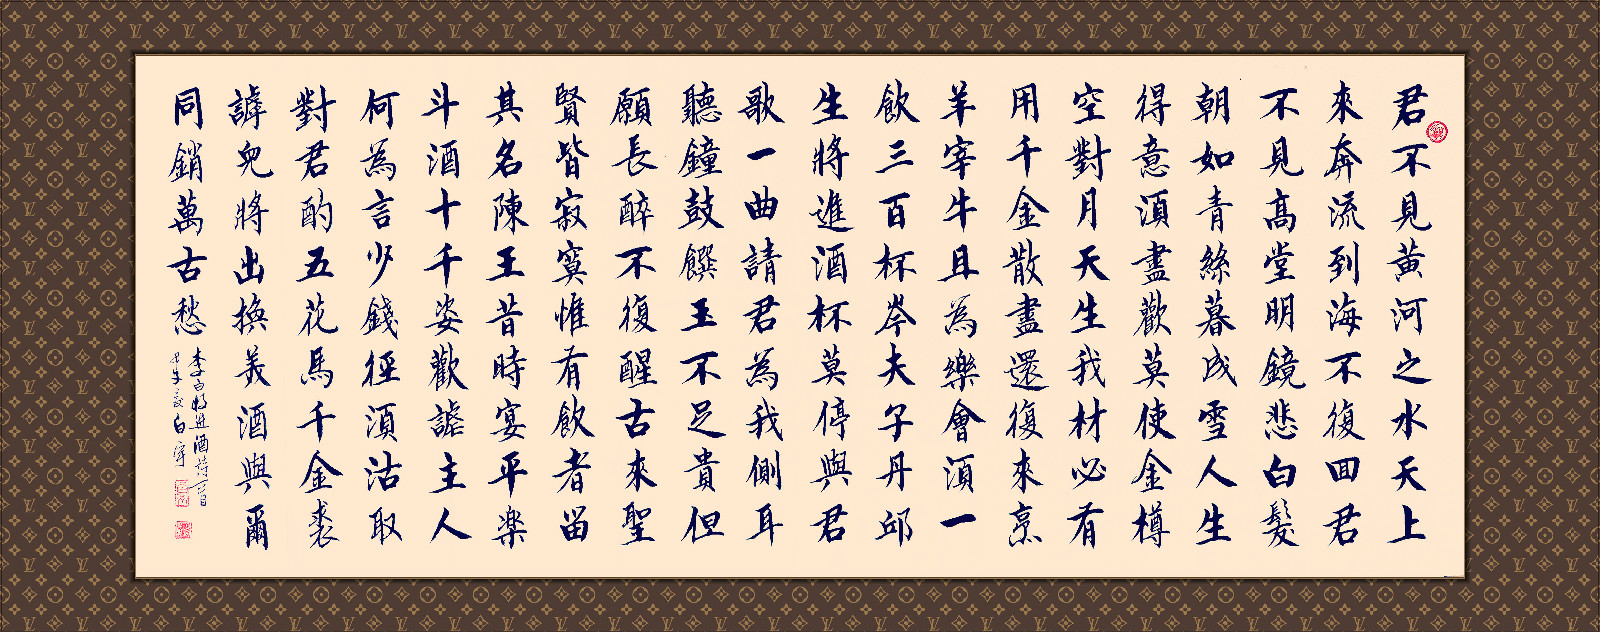 君不見黃河之水天上
來奔流到海不復回君
不見高堂明鏡悲白髮
朝如青絲暮成雪人生
得意須盡歡莫使金樽
空對月天生我材必有
用千金散盡還復來烹
羊宰牛且為樂會須一
飲三百杯岑夫子丹邱
生將進酒杯莫停與君
歌一曲請君為我側耳
聽鐘鼓饌玉不足貴但
願長醉不復醒古來聖
賢皆寂寞惟有飲者留
其名陳王昔時宴平楽
斗酒十千姿歡謔主人
何為言少錢徑須沽取
對君酌五花馬千金裘
謼兒將出換美酒與爾
同銷萬古愁
李白將進酒詩一首